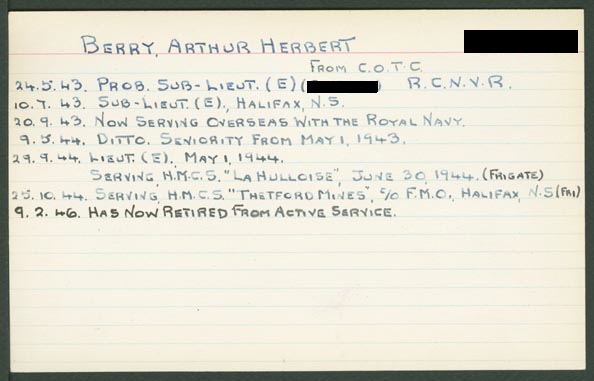 BERRY, ARTHUR HERBERT
FROM C.O.T.C.
24.5.43. PROB. SUB-LIEUT. (E) ( ) R.C.N.V.R.
10.7.43. SUB-LIEUT. (E)., HALIFAX, N.S.
20.9.43. NOW SERVING OVERSEAS WITH THE ROYAL NAVY.
9.5.44. DITTO. SENIORITY FROM MAY 1, 1943.
29.9.44. LIEUT. (E)., MAY 1, 1944.
SERVING, H.M.C.S. "LA HULLOISE", JUNE 30, 1944. (FRIGATE)
25.10.44. SERVING, H.M.C.S. "THETFORD MINES", c/o F.M.O., HALIFAX, N.S (FRI)
9.2.46. HAS NOW RETIRED FROM ACTIVE SERVICE.